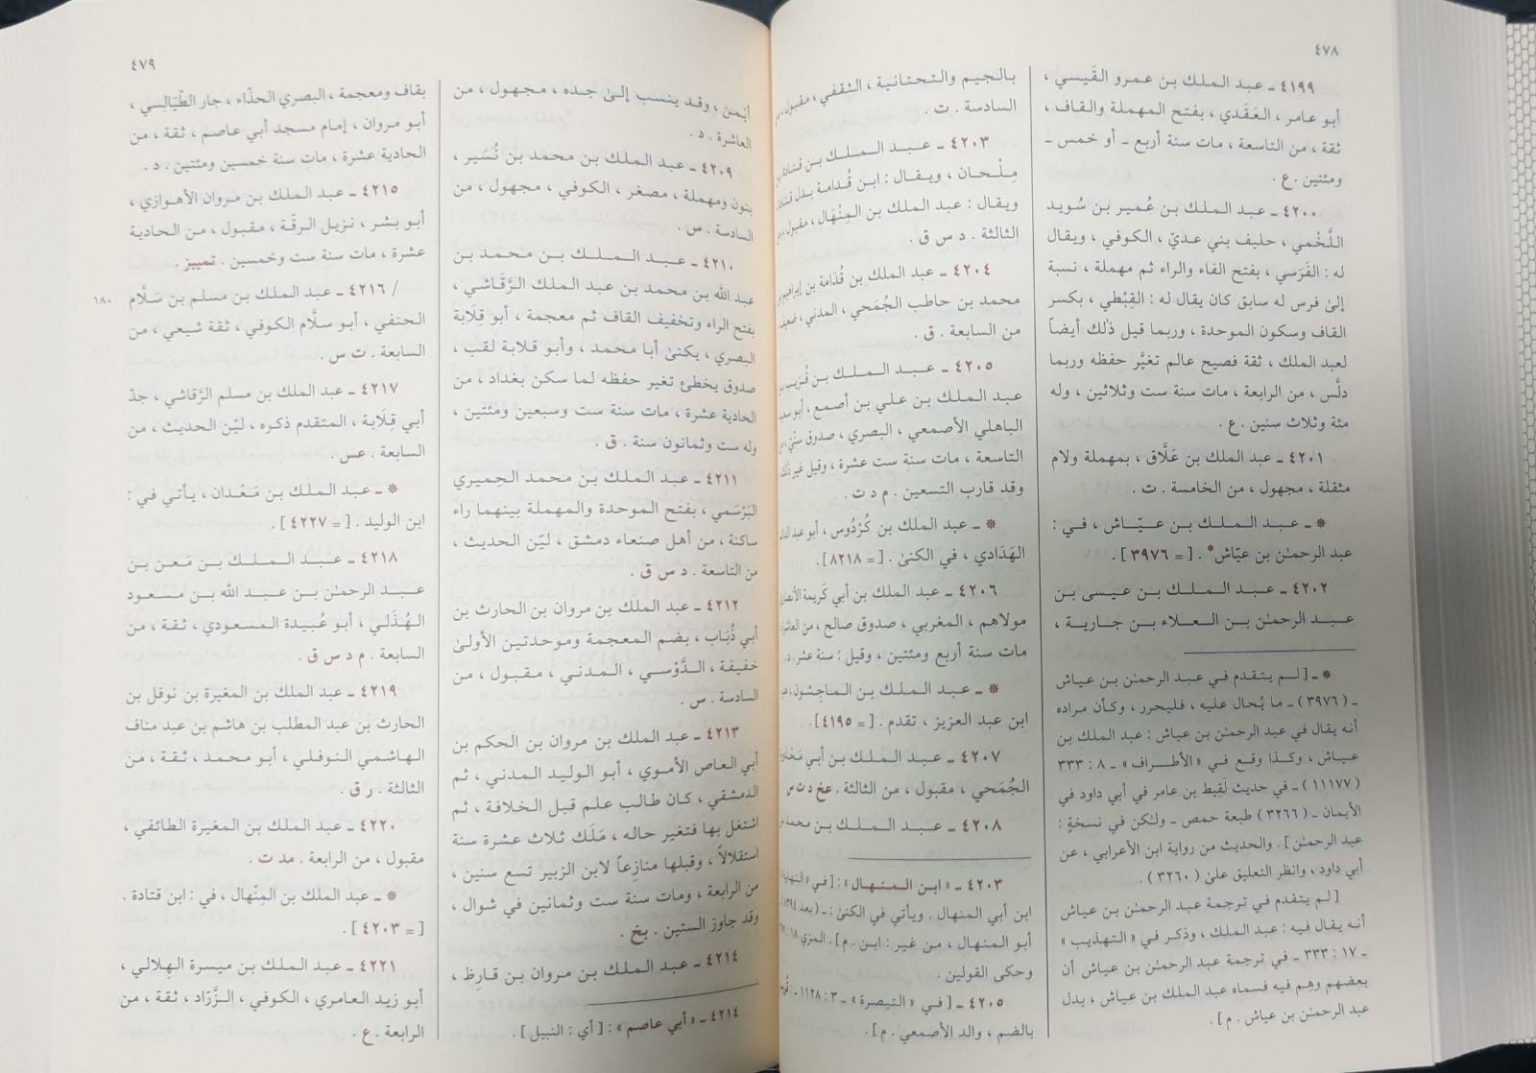 ٤٧٨
٤١٩٩ ـ عبد الملك بن عمرو القَيسي ،
أبو عامر ، العَقَدي ، بفتح المهملة والقاف ،
ثقة ، من التاسعة ، مات سنة أربع ـ أو خمس ـ
ومئتين . ع .
٤٢٠٠ ـ عبد الملك بن عُمير بن سُويد
اللَّخْمي ، حليف بني عديّ ، الكوفي ، ويقال
له : الفَرَسي ، بفتح الفاء والراء ثم مهملة ، نسبة
إلىٰ فرس له سابق كان يقال له : القِبْطي ، بكسر
القاف وسكون الموحدة ، وربما قيل ذٰلك أيضاً
لعبد الملك ، ثقة فصيح عالم تغيَّر حفظه وربما
دلَّس ، من الرابعة ، مات سنة ست وثلاثين ، وله
مئة وثلاث سنين . ع .
٤٢٠١ ـ عبد الملك بن عَلَّاق ، بمهملة ولام
مثقلة ، مجهول ، من الخامسة . ت .
* ـ عبد الملك بن عيّاش ، في :
عبد الرحمٰن بن عيّاش* . [ = ٣٩٧٦ ] .
٤٢٠٢ ـ عبد الملك بن عيسى بن
عبد الرحمٰن بن العلاء بن جارية ،
* ـ [ لم يتقدم في عبد الرحمٰن بن عياش
ـ ( ٣٩٧٦ ) ـ ما يُحال عليه ، فليحرر ، وكأن مراده
أنه يقال في عبد الرحمٰن بن عياش : عبد الملك بن
عياش ، وكذا وقع في « الأطراف » ـ ٨ : ٣٣٣
( ١١١٧٧ ) ـ في حديث لَقِيط بن عامر في أبي داود في
الأيمان ـ ( ٣٢٦٦ ) طبعة حمص ـ ولٰكن في نسخةٍ :
عبد الرحمٰن ] . والحديث من رواية ابن الأعرابي ، عن
أبي داود ، وانظر التعليق علىٰ ( ٣٢٦٠ ) .
[ لم يتقدم في ترجمة عبد الرحمٰن بن عياش
أنه يقال فيه : عبد الملك ، وذكر في « التهذيب »
ـ ١٧ : ٣٣٣ ـ في ترجمة عبد الرحمٰن بن عياش أن
بعضهم وهِم فيه فسماه عبد الملك بن عياش ، بدل
عبد الرحمٰن بن عياش . م ] .
بالجيم والتحتانية ، الثقفي ، مقبول ، من
السادسة . ت .
٤٢٠٣ ـ عبد الملك بن قتادة بن
مِلْحان ، ويقال : ابن قُدامة بدل قتادة
ويقال : عبد الملك بن المِنْهال ، مقبول ، من
الثالثة . د س ق .
٤٢٠٤ ـ عبد الملك بن قُدَامة بن إبراهيم بن
محمد بن حاطب الجُمَحي ، المدني ، ضعيف
من السابعة . ق .
٤٢٠٥ ـ عبد الملك بن قُرَيب بن
عبد الملك بن علي بن أصمع ، أبو سعيد
الباهلي الأصمعي ، البصري ، صدوق سُنّي ، من
التاسعة ، مات سنة ست عشرة ، وقيل غير ذلك
وقد قارب التسعين . م د ت .
* ـ عبد الملك بن كُرْدُوس ، أبو عبد الدائم
الهَدَادي ، في الكنىٰ . [ = ٨٢١٨ ] .
٤٢٠٦ ـ عبد الملك بن أبي كَريمة الأنصاري
مولاهم ، المغربي ، صدوق صالح ، من العاشرة
مات سنة أربع ومئتين ، وقيل : سنة عشر . د .
* ـ عبد الملك بن الماجِشُون ، هو
ابن عبد العزيز ، تقدم . [ = ٤١٩٥ ] .
٤٢٠٧ ـ عبد الملك بن أبي مَحْذورة
الجُمَحي ، مقبول ، من الثالثة . عخ د ت س
٤٢٠٨ ـ عبد الملك بن محمد بن
٤٢٠٣ ـ « ابن المنهال » : [ في « النهاية
ابن أبي المنهال . ويأتي في الكنىٰ : ـ ( بعد ٨٣٩٤
أبو المنهال ، من غير : ابن . م ] . المزي ١٨ :
وحكى القولين .
٤٢٠٥ ـ [ في « التبصرة » ـ ٣ : ١١٢٨ ـ
بالضم ، والد الأصمعي . م ] .
٤٧٩
أيمن ، وقد ينسب إلىٰ جده ، مجهول ، من
العاشرة . د .
٤٢٠٩ ـ عبد الملك بن محمد بن نُسَير ،
بنون ومهملة ، مصغر ، الكوفي ، مجهول ، من
السادسة . س .
٤٢١٠ ـ عبد الملك بن محمد بن
عبد الله بن محمد بن عبد الملك الرَّقَاشي ،
بفتح الراء وتخفيف القاف ثم معجمة ، أبو قِلابة
البصري ، يكنىٰ أبا محمد ، وأبو قلابة لقب ،
صدوق يخطئ تغير حفظه لما سكن بغداد ، من
الحادية عشرة ، مات سنة ست وسبعين ومئتين ،
وله ست وثمانون سنة . ق .
٤٢١١ ـ عبد الملك بن محمد الحِميري
البَرْسَمي ، بفتح الموحدة والمهملة بينهما راء
ساكنة ، من أهل صنعاء دمشق ، ليّن الحديث ،
من التاسعة . د س ق .
٤٢١٢ ـ عبد الملك بن مروان بن الحارث بن
أبي ذُبَاب ، بضم المعجمة وموحدتين الأولىٰ
خفيفة ، الدَّوْسي ، المدني ، مقبول ، من
السادسة . س .
٤٢١٣ ـ عبد الملك بن مروان بن الحكم بن
أبي العاص الأموي ، أبو الوليد المدني ، ثم
الدمشقي ، كان طالب علم قبل الخلافة ، ثم
اشتغل بها فتغير حاله ، مَلَك ثلاث عشرة سنة
استقلالاً ، وقبلها منازِعاً لابن الزبير تسع سنين ،
من الرابعة ، ومات سنة ست وثمانين في شوال ،
وقد جاوز الستين . بخ .
٤٢١٤ ـ عبد الملك بن مروان بن قارِظ ،
٤٢١٤ ـ « أبي عاصم » : [ أي : النبيل ] .
بقاف ومعجمة ، البصري الحذّاء ، جار الطّيَالِسي ،
أبو مروان ، إمام مسجد أبي عاصم ، ثقة ، من
الحادية عشرة ، مات سنة خمسين ومئتين . د .
٤٢١٥ ـ عبد الملك بن مروان الأهوازي ،
أبو بشر ، نزيل الرقّة ، مقبول ، من الحادية
عشرة ، مات سنة ست وخمسين . تمييز .
/ ٤٢١٦ ـ عبد الملك بن مسلم بن سَلَّام
١٨٠
الحنفي ، أبو سلَّام الكوفي ، ثقة شيعي ، من
السابعة . ت س .
٤٢١٧ ـ عبد الملك بن مسلم الرَّقاشي ، جدّ
أبي قِلَابة ، المتقدم ذكره ، ليّن الحديث ، من
السابعة . عس .
* ـ عبد الملك بن مَعْدان ، يأتي في :
ابن الوليد . [ = ٤٢٢٧ ] .
٤٢١٨ ـ عبد الملك بن مَعن بن
عبد الرحمٰن بن عبد الله بن مسعود
الهُذَلي ، أبو عُبيدة المسعودي ، ثقة ، من
السابعة . م د س ق .
٤٢١٩ ـ عبد الملك بن المغيرة بن نوفل بن
الحارث بن عبد المطلب بن هاشم بن عبد مناف
الهاشمي النوفلي ، أبو محمد ، ثقة ، من
الثالثة . ر ق .
٤٢٢٠ ـ عبد الملك بن المغيرة الطائفي ،
مقبول ، من الرابعة . مد ت .
* ـ عبد الملك بن المِنْهال ، في : ابن قتادة .
[ = ٤٢٠٣ ] .
٤٢٢١ ـ عبد الملك بن ميسرة الهِلالي ،
أبو زيد العامري ، الكوفي ، الزَّرَّاد ، ثقة ، من
الرابعة . ع .